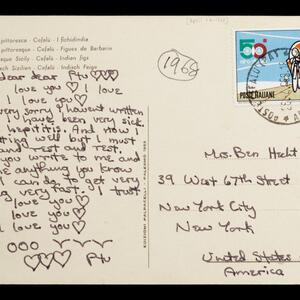 pittoresca - Cefalù - I fichidindia
pittoresque - Cefalù - Figues de Barbarie
esque Sicily - Cefalù - Indian figs
sch Sizilien - Cefalù - Indisch Feige
1968
50
POSTE ITALIANE
Dear dear Ptu
I love you I love
I love you
very sorry I havent written
have been very sick
hepititis. And now I
tting well but I must
and rest and rest.
you write to me and
me anything you know
I can do to get very
ng very fast. I trust
love you
I love you
I love you
OOO
Ptu
EDIZIONI
PALERMO
Mrs. Ben Hecht
39 West 67th Street
New York City
New York
United States
America